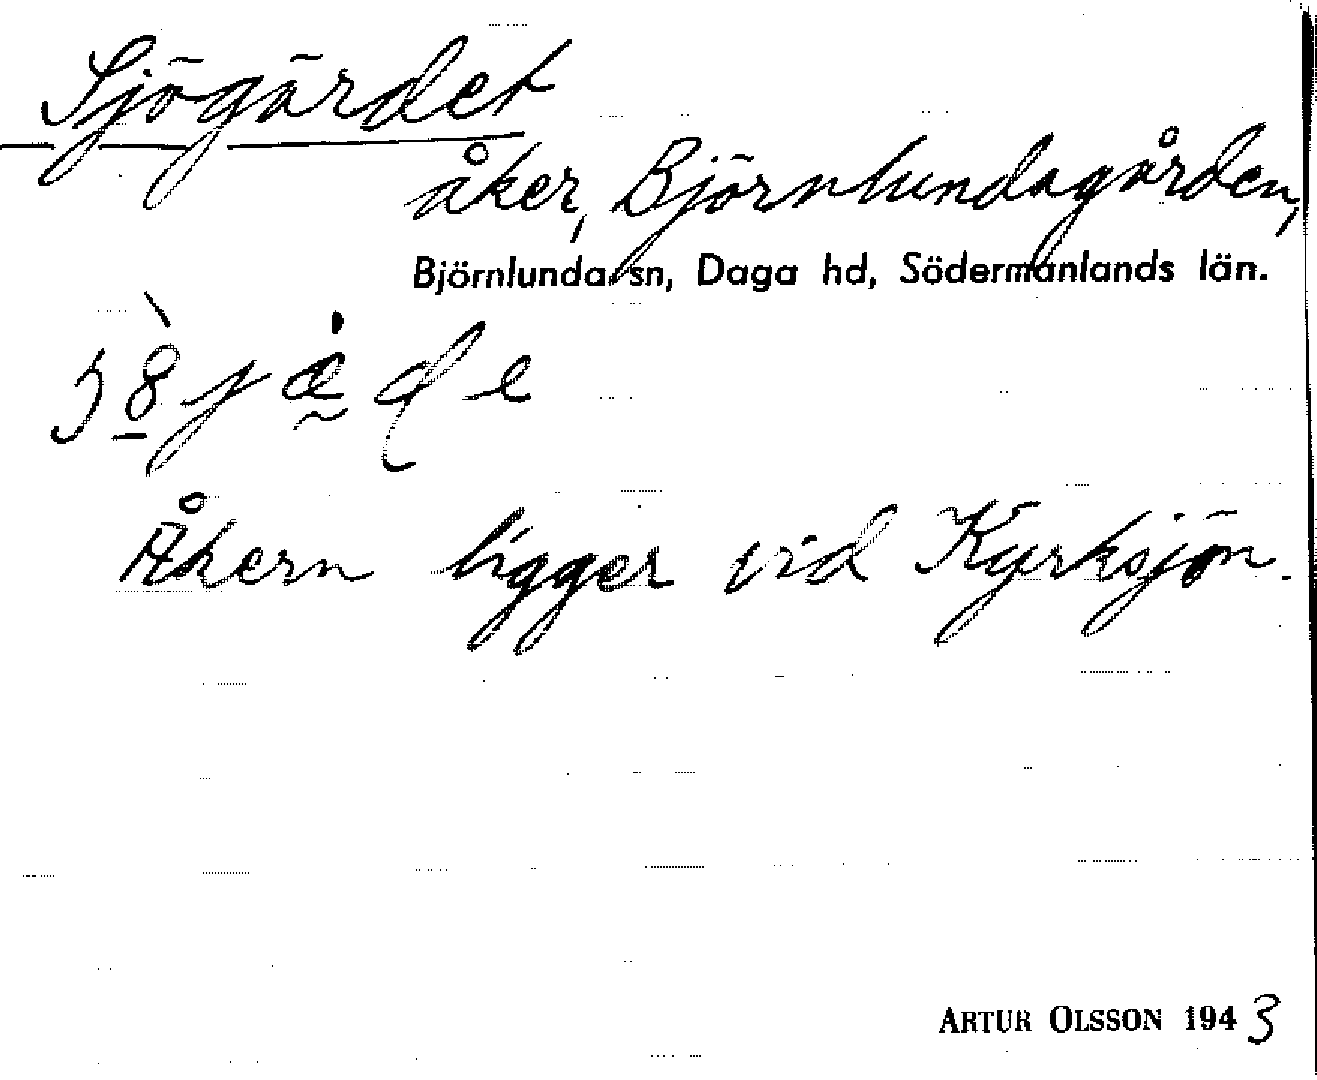 Sjögärdet
åker, Björnlundagården,
Björnlunda sn, Daga hd, Södermanlands län.
Åkern ligger vid Kyrksjön.
ARTUR OLSSON 1943